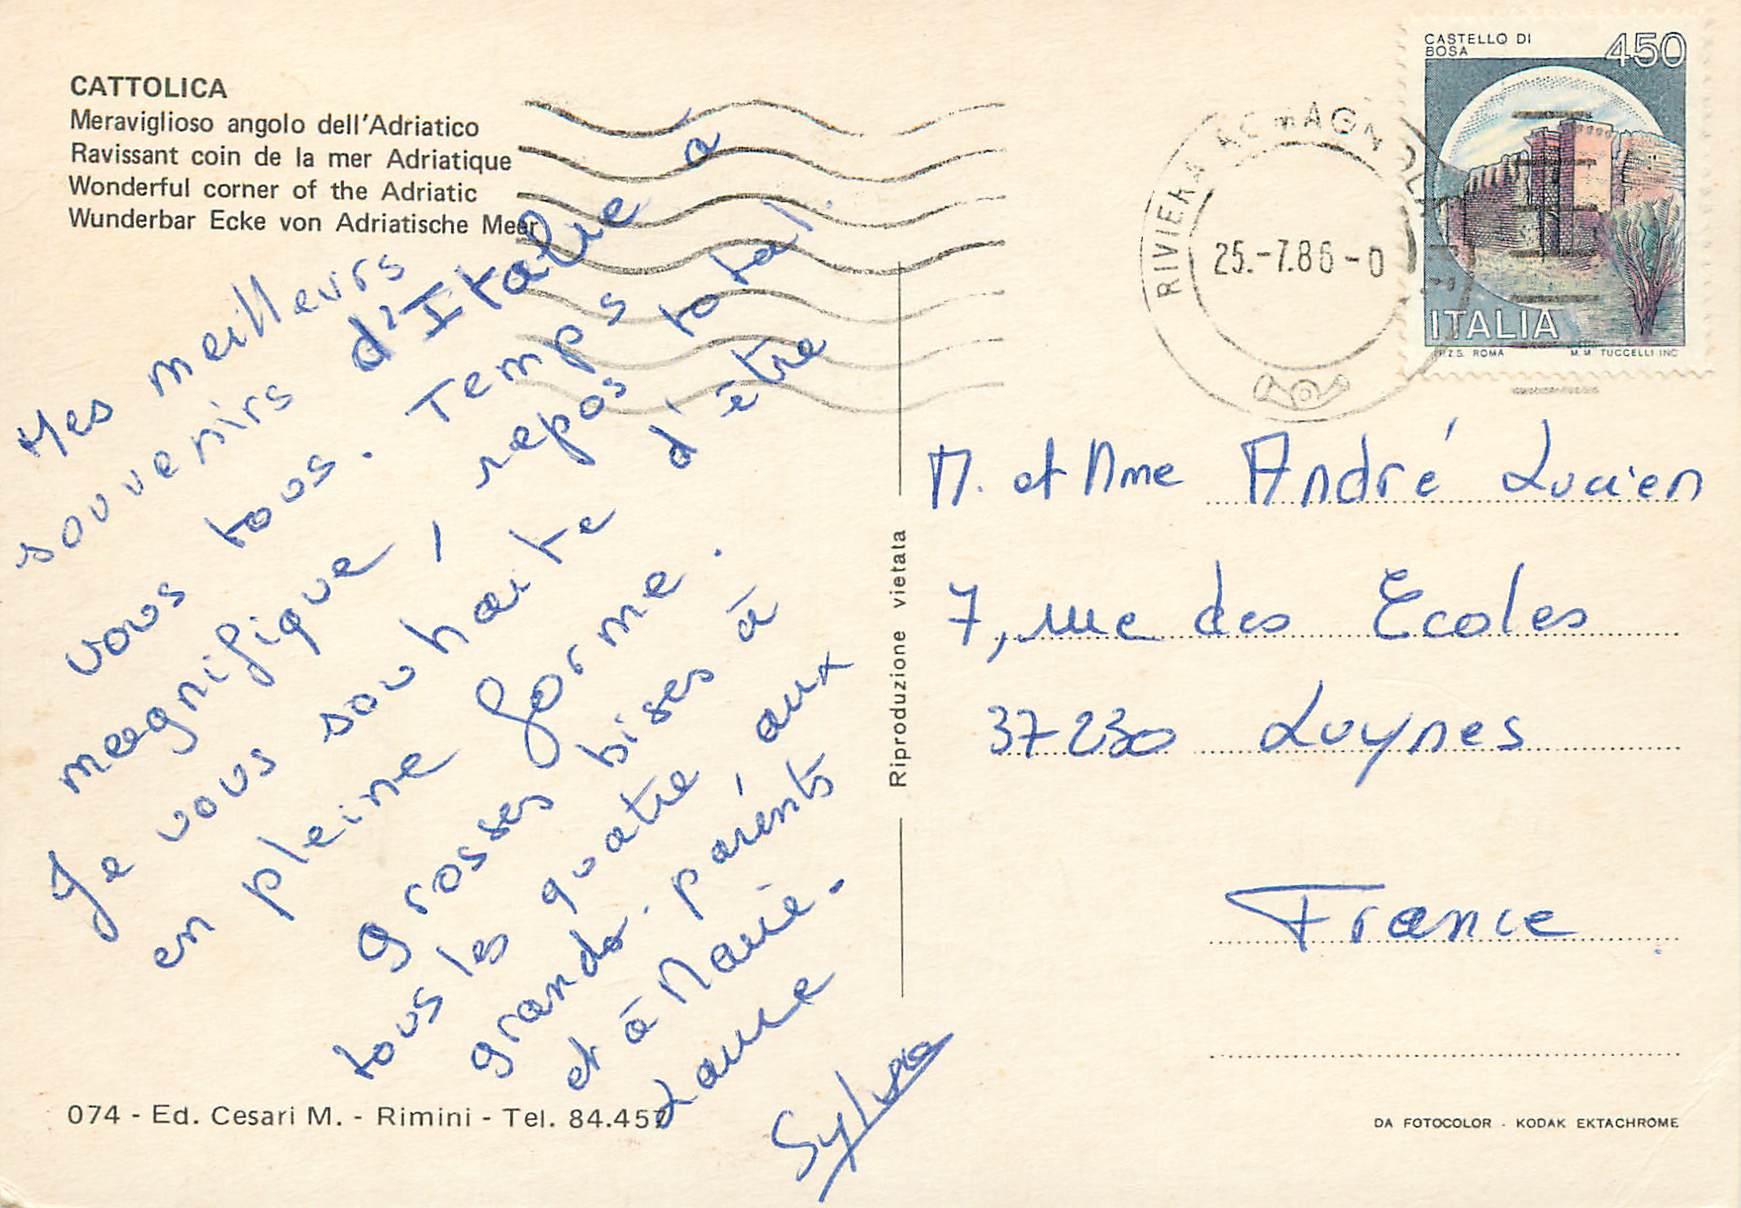 CATTOLICA
Meraviglioso angolo dell'Adriatico
Ravissant coin de la mer Adriatique
Wonderful corner of the Adriatic
Wunderbar Ecke von Adriatische Meer
Mes meilleurs
souvenirs d'Italie à
vous tous. Temps
magnifique, repos total.
Je vous souhaite d'être
en pleine forme.
Grosses bises à
tous les quatre aux
grands-parents
et à Marie-
Laure
074 - Ed. Cesari M. - Rimini - Tel. 84.457
Riproduzione vietata
RIVIERA
25.-7.86-0
CASTELLO DI
BOSA
450
ITALIA
I.P.Z.S. ROMA M.M. TUCCELLI INC
M. et Mme André Lucien
7, rue des Ecoles
37230 Luynes
France
DA FOTOCOLOR - KODAK EKTACHROME